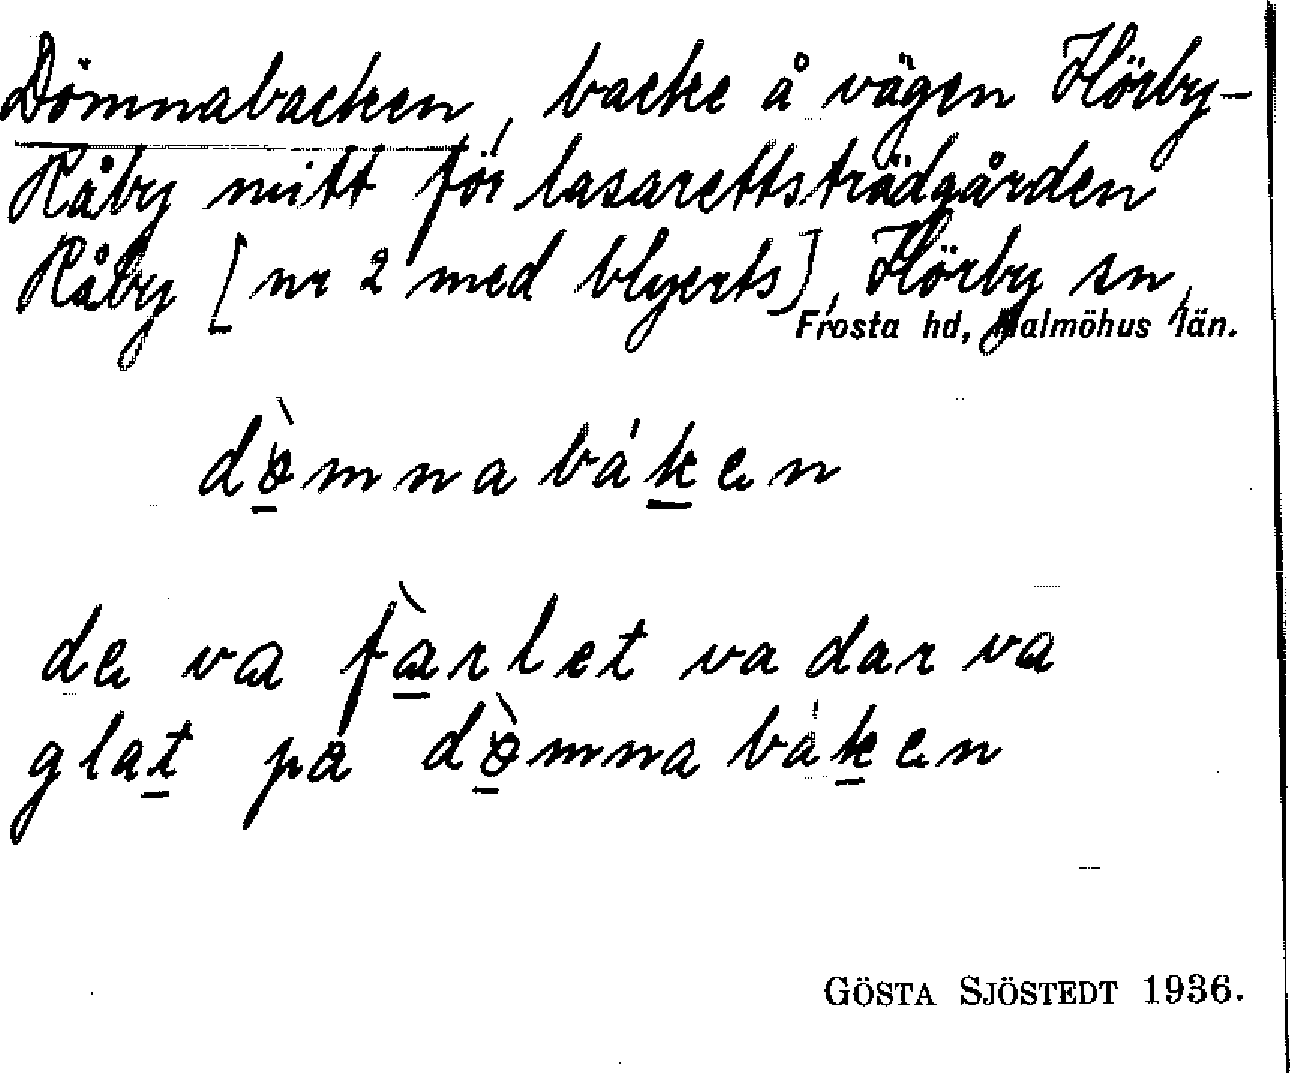 Dömnabacken, backe å vägen Hörby-
Råby mitt för lasarettsträdgården
Råby [nr 2 med blyerts], Hörby sn,
Frosta hd, Malmöhus län.
dø̀mnabáken
de va fàrlet va dar va
glat på dø̀mnabáken
GÖSTA SJÖSTEDT 1936.